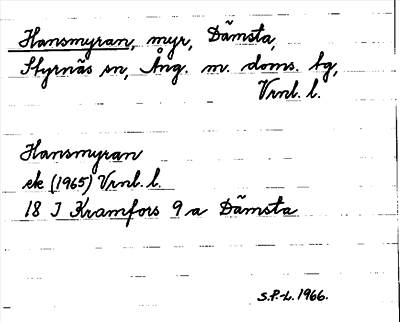 Hansmyran, myr, Dämsta,
Styrnäs sn, Ång. m. doms. bg,
Vrnl. l.
Hansmyran
ek (1965) Vrnl. l.
18 J Kramfors 9 a Dämsta
S.P.-L. 1966.